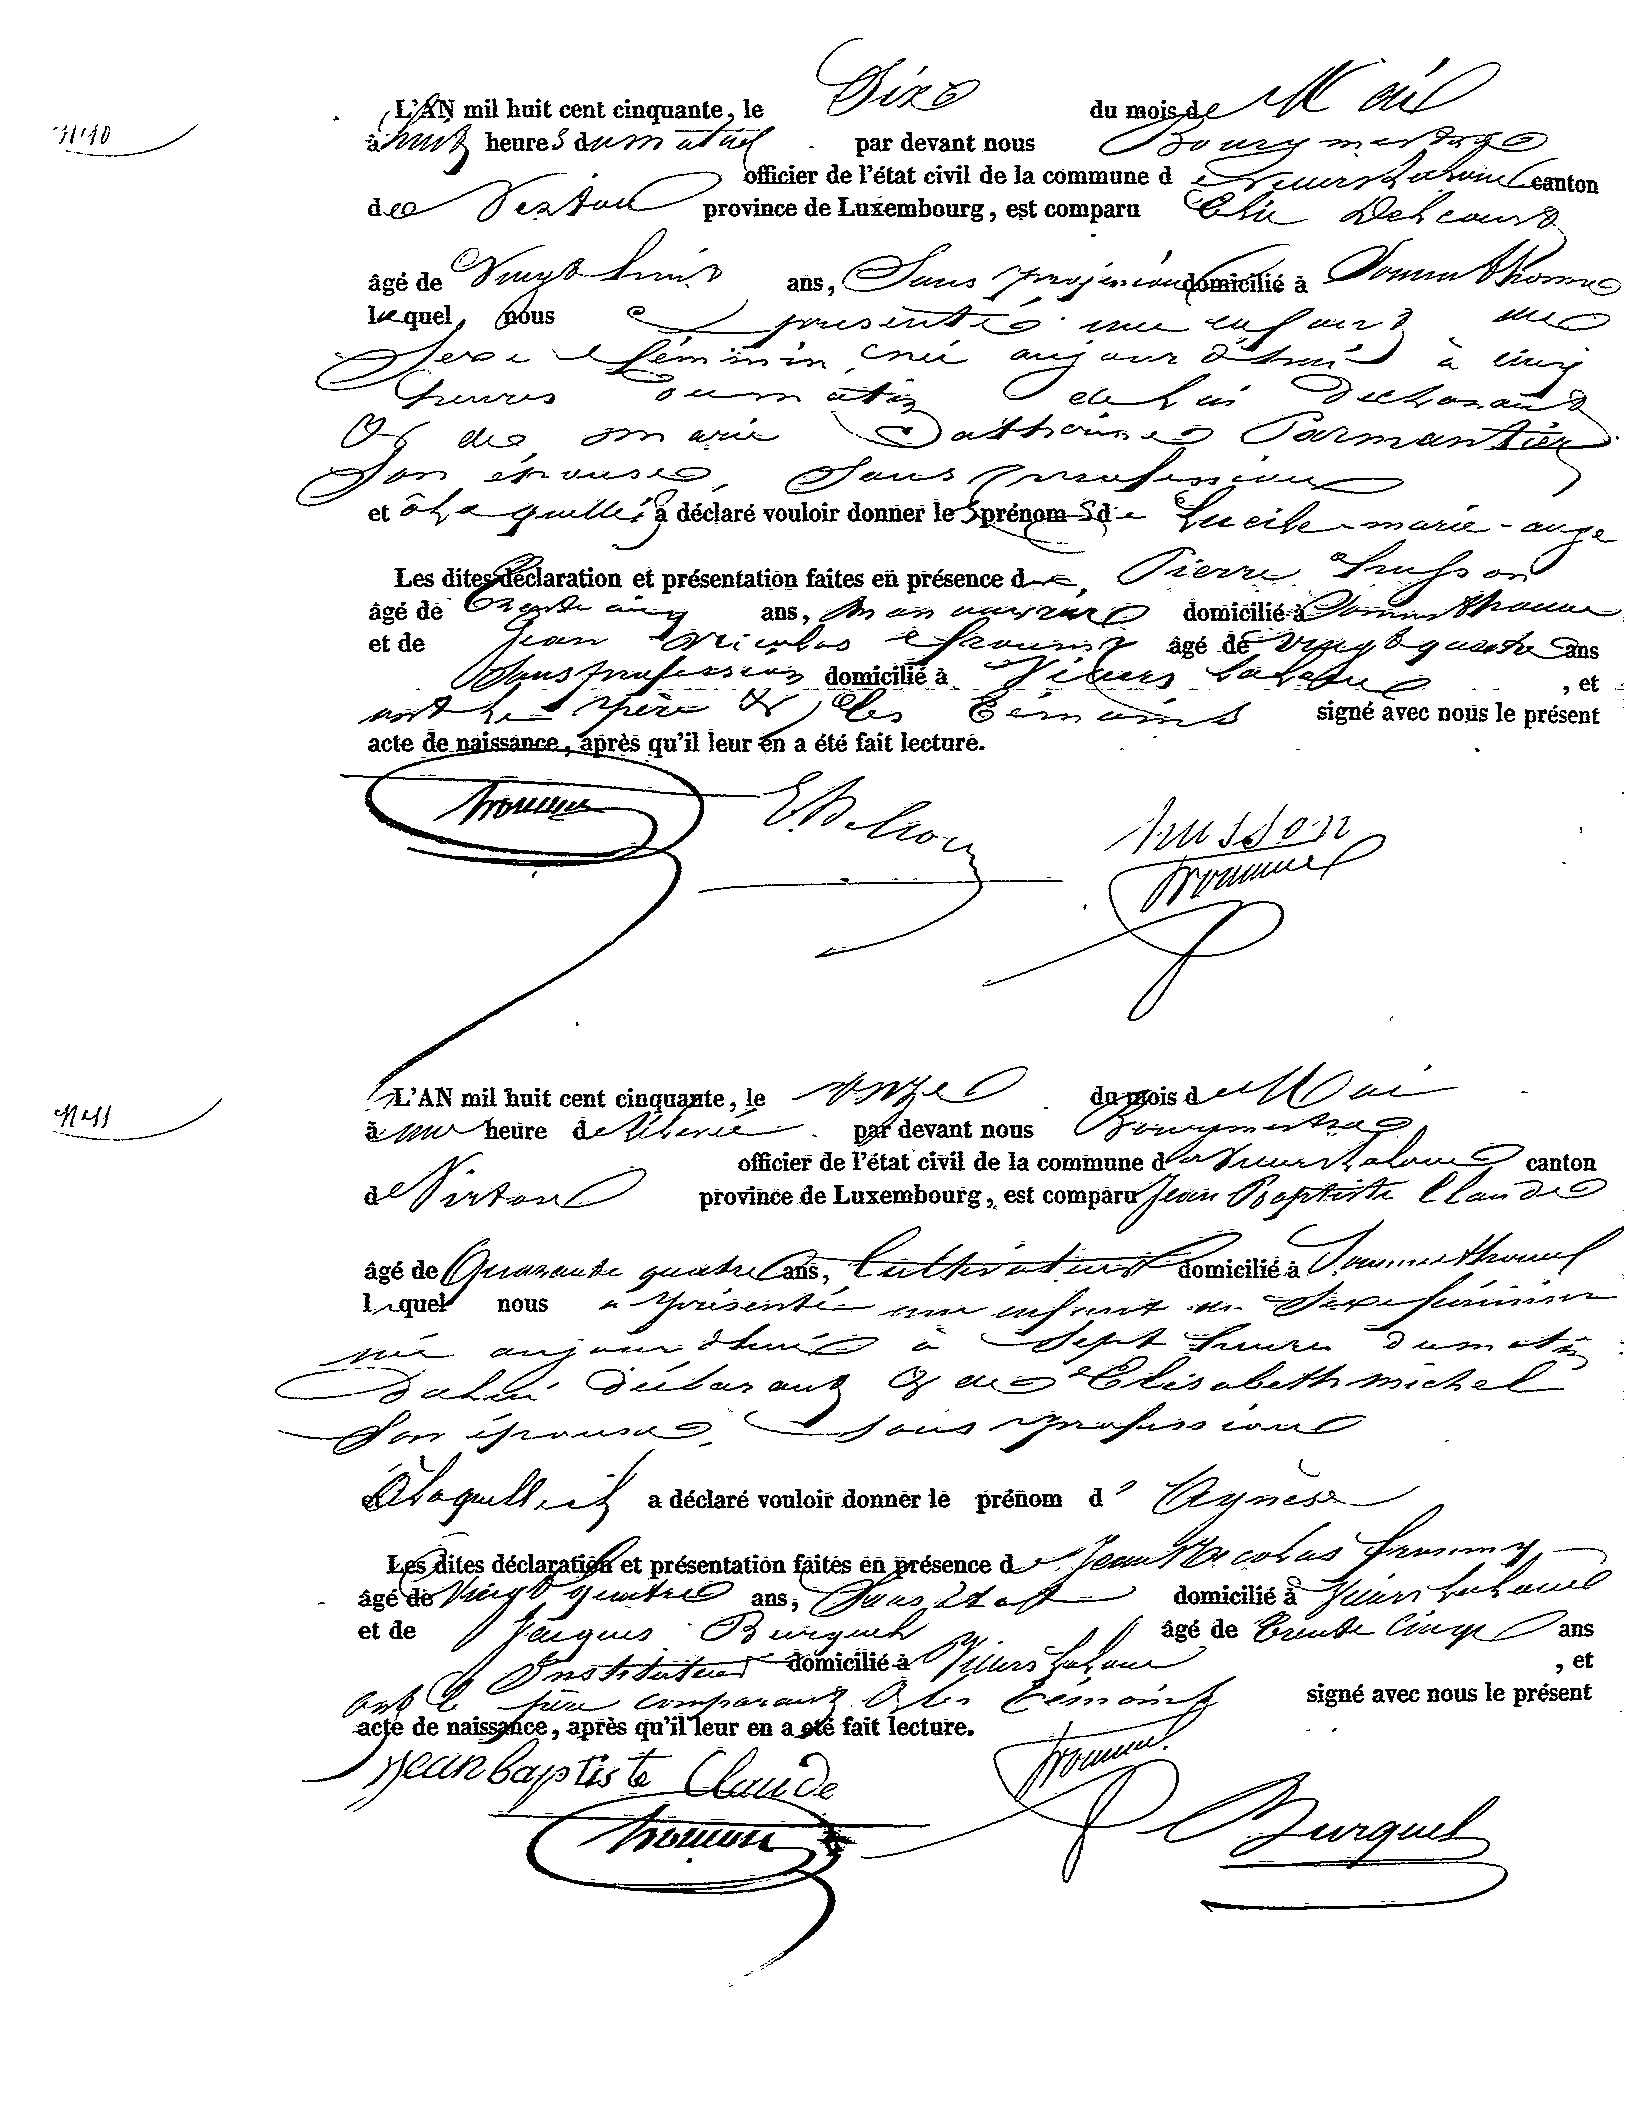 N° 10
L'AN mil huit cent cinquante, le Dix du mois de Mai
à huit heures du matin par devant nous Bourgmestre
officier de l'état civil de la commune de Villers la loue canton
de Virton province de Luxembourg, est comparu Elie Delcourt
âgé de Vingt huit ans, Sans profession domicilié à Sommethonne
lequel nous a présenté une enfant du
Sexe féminin, née aujourd'hui à cinq
heures du matin de lui déclarant
Et de marie Catherine Parmantier
Son épouse, Sans profession
et à laquelle il a déclaré vouloir donner les prénoms de Lucile-marie-ange
Les dites déclaration et présentation faites en présence de Pierre husson
âgé de trente cinq ans, manouvrier domicilié à Sommethonne
et de Jean Nicolas âgé de vingt quatre ans
Sans profession domicilié à Villers la loue, et
ont le père & les témoins signé avec nous le présent
acte de naissance, après qu'il leur en a été fait lecture.
husson
N° 11
L'AN mil huit cent cinquante, le onze du mois de Mai
à une heure de relevée par devant nous Bourgmestre
officier de l'état civil de la commune de Villers la loue canton
de Virton province de Luxembourg, est comparu Jean Baptiste Claude
âgé de Quarante quatre ans, Cultivateur domicilié à Sommethonne
lequel nous a présenté une enfant du Sexe féminin
née aujourd'hui à Sept heures du matin
de lui déclarant Et de Elisabeth michel
Son épouse, sans profession
à laquelle il a déclaré vouloir donner le prénom d' Agnès
Les dites déclaration et présentation faites en présence de Jean Nicolas
âgé de Vingt quatre ans, Sans état domicilié à Villers la loue
et de Jacques Burquel âgé de trente cinq ans
Instituteur domicilié à Villers la loue, et
ont le père comparant & les témoins signé avec nous le présent
acte de naissance, après qu'il leur en a été fait lecture.
Jean baptiste Claude
Burquel